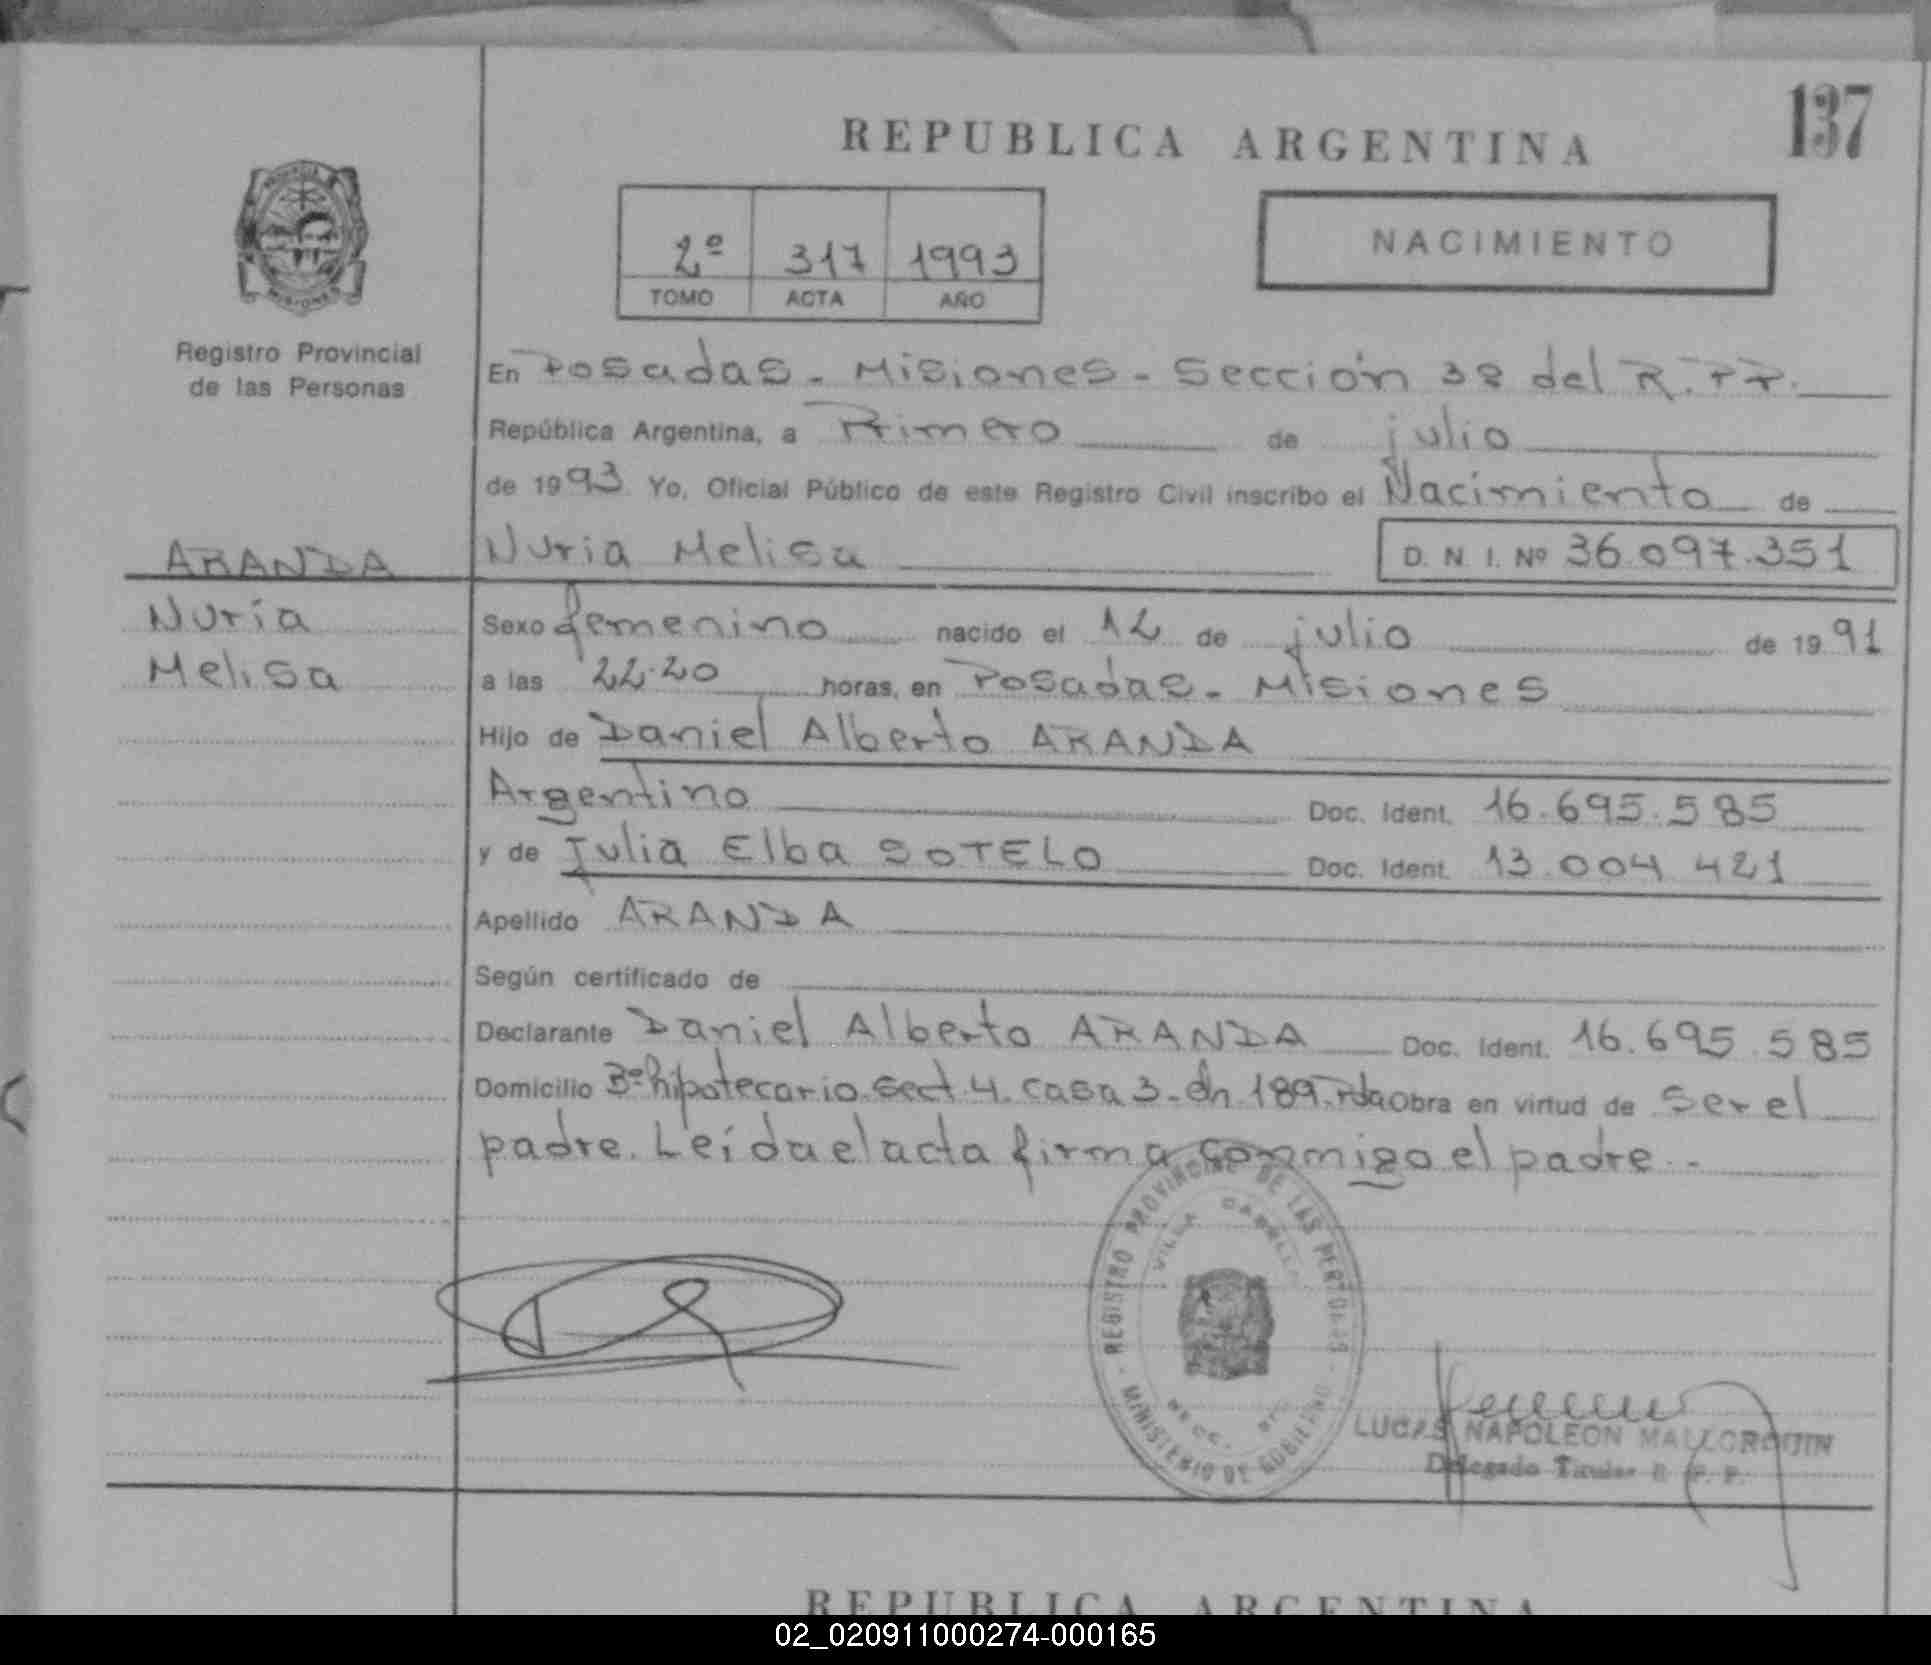 137
REPUBLICA ARGENTINA
2º 317 1993
TOMO ACTA AÑO
NACIMIENTO
MISIONES
Registro Provincial
de las Personas
En Posadas - Misiones - Sección 3ª del R.P.P.
República Argentina, a Primero de julio
de 1993 Yo, Oficial Público de este Registro Civil inscribo el Nacimiento de
ARANDA
Nuria Melisa D. N. I. Nº 36.097.351
Nuria
Melisa
Sexo femenino nacido el 12 de julio de 1991
a las 22.20 horas, en Posadas - Misiones
Hijo de Daniel Alberto ARANDA
Argentino Doc. Ident. 16.695.585
y de Julia Elba SOTELO Doc. Ident. 13.004.421
Apellido ARANDA
Según certificado de
Declarante Daniel Alberto ARANDA Doc. Ident. 16.695.585
Domicilio Bº hipotecario sect. 4. casa 3. ch 189. Pda Obra en virtud de ser el
padre. Leída el acta firma conmigo el padre.-
REGISTRO PROVINCIAL DE LAS PERSONAS
VILLA CABELLO
MINISTERIO DE GOBIERNO
LUCAS NAPOLEON MALLORQUIN
Delegado Titular R. P. P.
REPUBLICA ARGENTINA
02_020911000274-000165